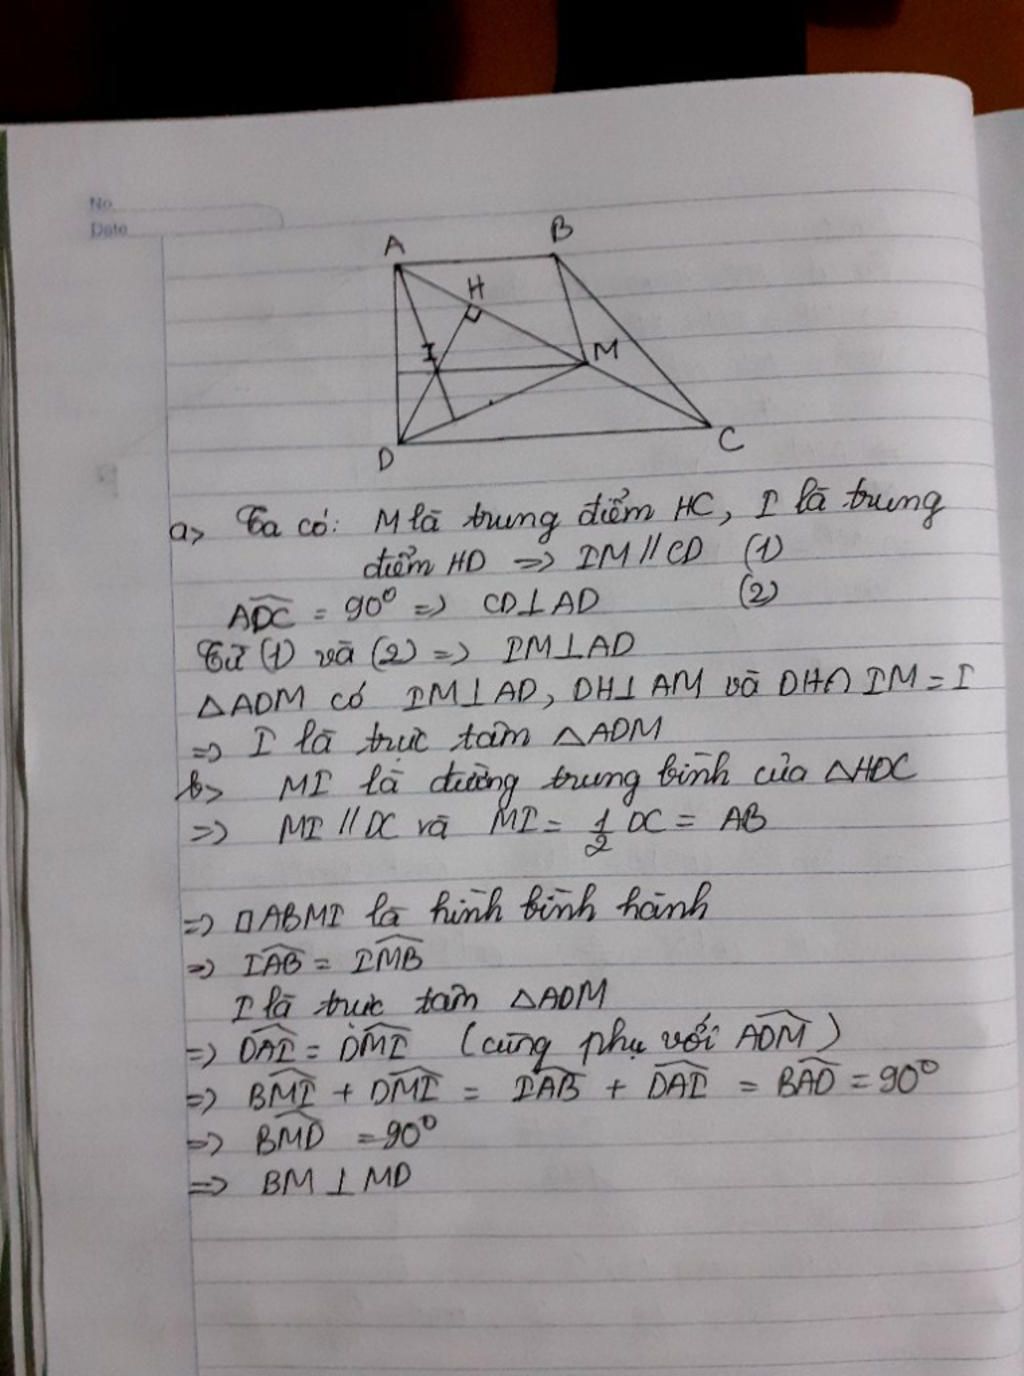 No.
Date
A
B
H
I
M
D
C
a> Ta có: M là trung điểm HC, I là trung
điểm HD => IM // CD (1)
∠ADC = 90° => CD ⊥ AD (2)
Từ (1) và (2) => IM ⊥ AD
△ADM có IM ⊥ AD, DH ⊥ AM và DH ∩ IM = I
=> I là trực tâm △ADM
b> MI là đường trung bình của △HDC
=> MI // DC và MI = 1/2 DC = AB
=> □ABMI là hình bình hành
=> ∠IAB = ∠IMB
I là trực tâm △ADM
=> ∠DAI = ∠DMI (cùng phụ với ∠ADM)
=> ∠BMI + ∠DMI = ∠IAB + ∠DAI = ∠BAD = 90°
=> ∠BMD = 90°
=> BM ⊥ MD